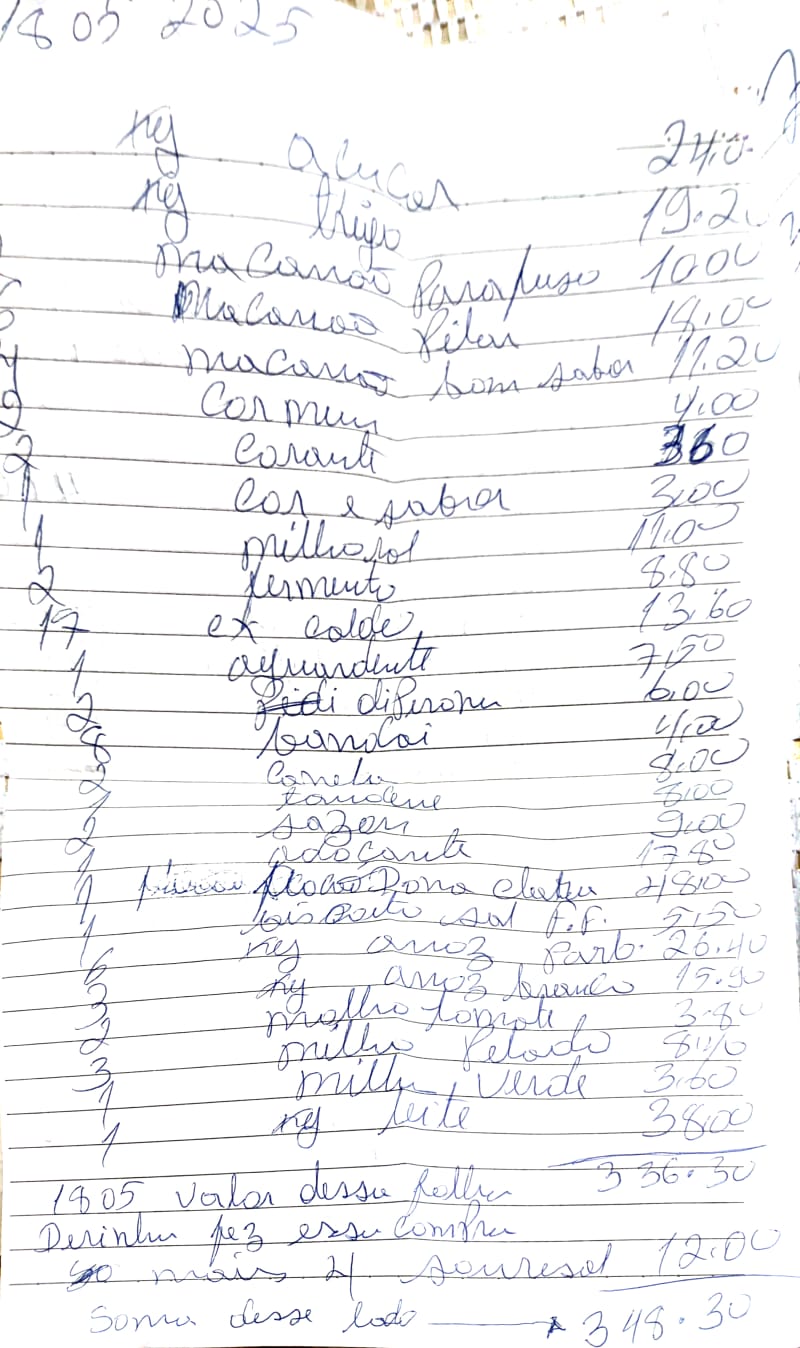 1805 2025
kg açucar 24,0
kg trigo 19.20
macarrão Parafuso 10.00
Macarrão Pilar 18.00
macarrão bom sabor 11.20
Cormum 4.00
2 corante 360
1 Cor e sabor 3,00
1 milhosol 11.00
2 fermento 8.80
17 ex caldo 13.60
1 aguardente 7,50
2 di 6,00
8 4,00
2 canela 8,00
1 8,00
2 sazon 9,00
1 adoçante 17.80
1 Dona clara 48,00
1 biscoito sal F.F. 5,50
6 kg arroz Parb. 26.40
3 kg arroz branco 15.90
2 molho tomate 3.80
3 milho Pelado
1 milho verde 3.60
1 kg leite 38,00
336.30
1805 valor dessa folha
Derinha fez essa compra
mais 4 12.00
Soma desse lado 348.30